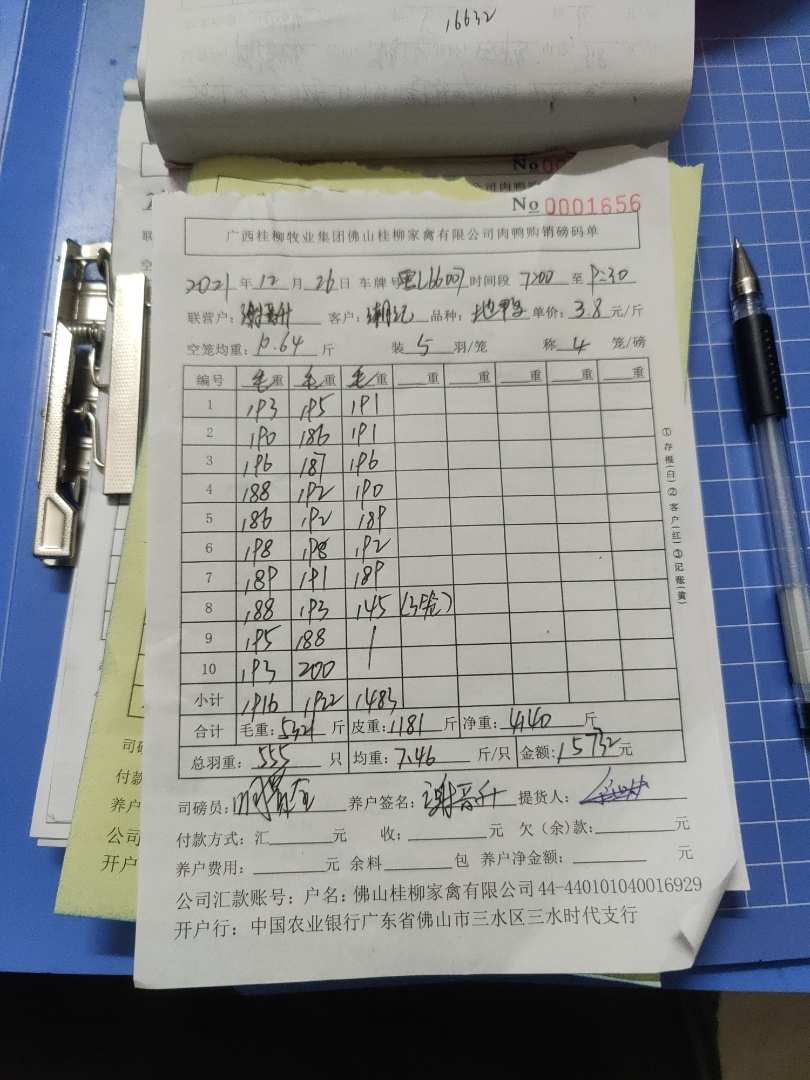 16632
No 00
司肉鸭购
No 0001656
广西桂柳牧业集团佛山桂柳家禽有限公司肉鸭购销磅码单
2021年12月26日 车牌号 粤L66007 时间段 7200 至 9:30
联营户：谢晋升 客户：潮记 品种：地鸭 单价：3.8元/斤
空笼均重：10.64斤 装5羽/笼 称4笼/磅
编号 毛重 毛重 毛重 重 重 重 重 重
1 193 195 191
2 190 186 191
3 196 187 196
4 188 192 190
5 186 192 189
6 198 198 192
7 189 191 189
8 188 193 145 (3笼)
9 195 188
10 193 200
小计 1916 1922 1483
合计 毛重：5321斤 皮重：1181斤 净重：4140斤
总羽重：555只 均重：7.46斤/只 金额：15732元
司磅员： 养户签名：谢晋升 提货人：
付款方式：汇 元 收： 元 欠（余）款： 元
养户费用： 元 余料 包 养户净金额： 元
公司汇款账号：户名：佛山桂柳家禽有限公司44-440101040016929
开户行：中国农业银行广东省佛山市三水区三水时代支行
①存根(白)②客户(红)③记账(黄)
联
空
司磅
付款
养户
公司
开户